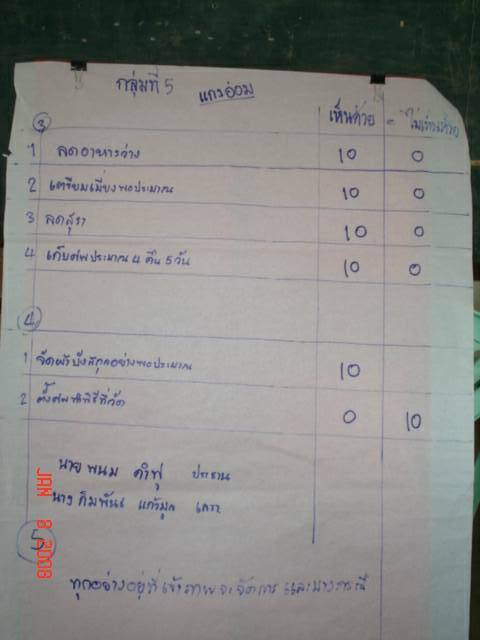 กลุ่มที่ 5 แกงอ่อม
③ เห็นด้วย ไม่เห็นด้วย
1 ลดอาหารว่าง 10 0
2 เตรียมเมี่ยงพอประมาณ 10 0
3 ลดสุรา 10 0
4 เก็บศพประมาณ 4 คืน 5 วัน 10 0
④
1 จัดผ้าบังสกุลอย่างพอประมาณ 10
2 ตั้งศพทำพิธีที่วัด 0 10
นายพนม คำฟู ประธาน
นาง แก้วมูล เลขา
⑤
ทุกอย่างอยู่ที่เจ้าภาพจะจัดการ และบางกรณี
JAN 8 2008